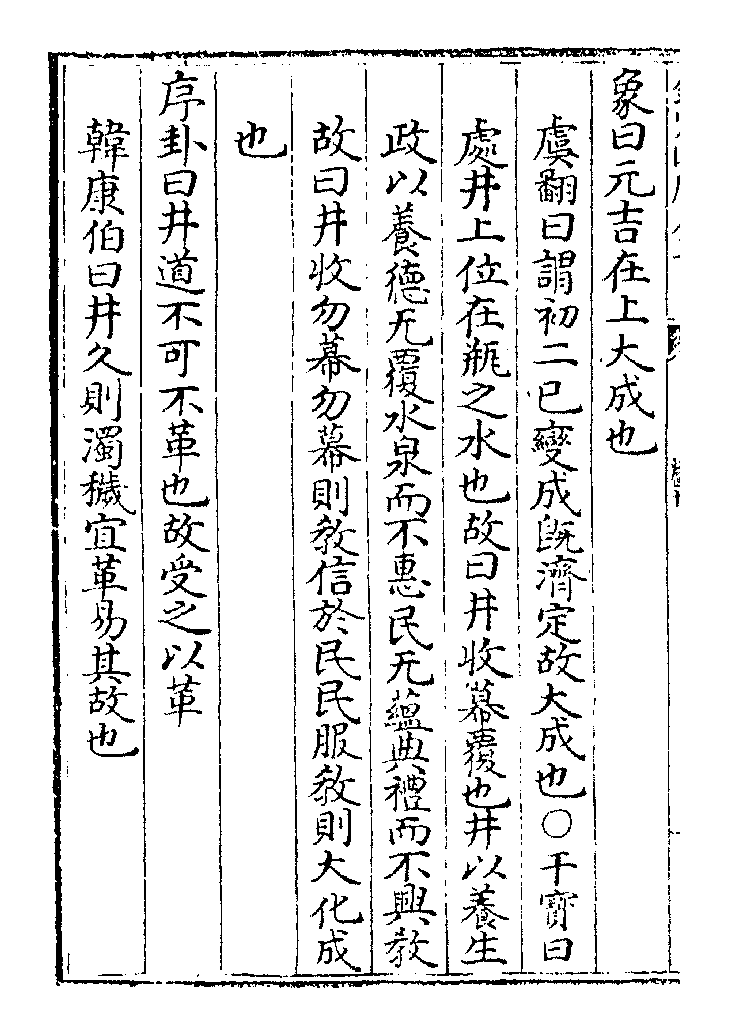 象曰元吉在上大成也
虞翻曰謂初二已變成既濟定故大成也○干寶曰
處井上位在瓶之水也故曰井收幕覆也井以養生
政以養德无覆水泉而不惠民无蘊典禮而不興教
故曰井收勿幕勿幕則教信於民民服教則大化成
也
序卦曰井道不可不革也故受之以革
韓康伯曰井久則濁穢宜革易其故也